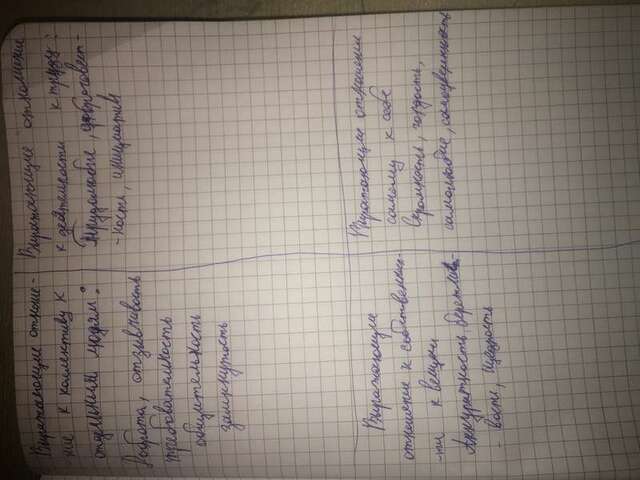 Выражающие отноше-
-ние к коллективу к
отдельным людям:
Доброта, отзывчивость
требовательность
общительность
замкнутость
Выражающие отношение
к деятельности к труду:
Трудолюбие, добросовест-
-ность, инициатив
Выражающие
отношение к собственно-
-ми к вещам
Аккуратность бережли-
- вость, щедрость
Выражающие отношении
самому к себе
скромность, гордость,
самолюбие, самоуверенность